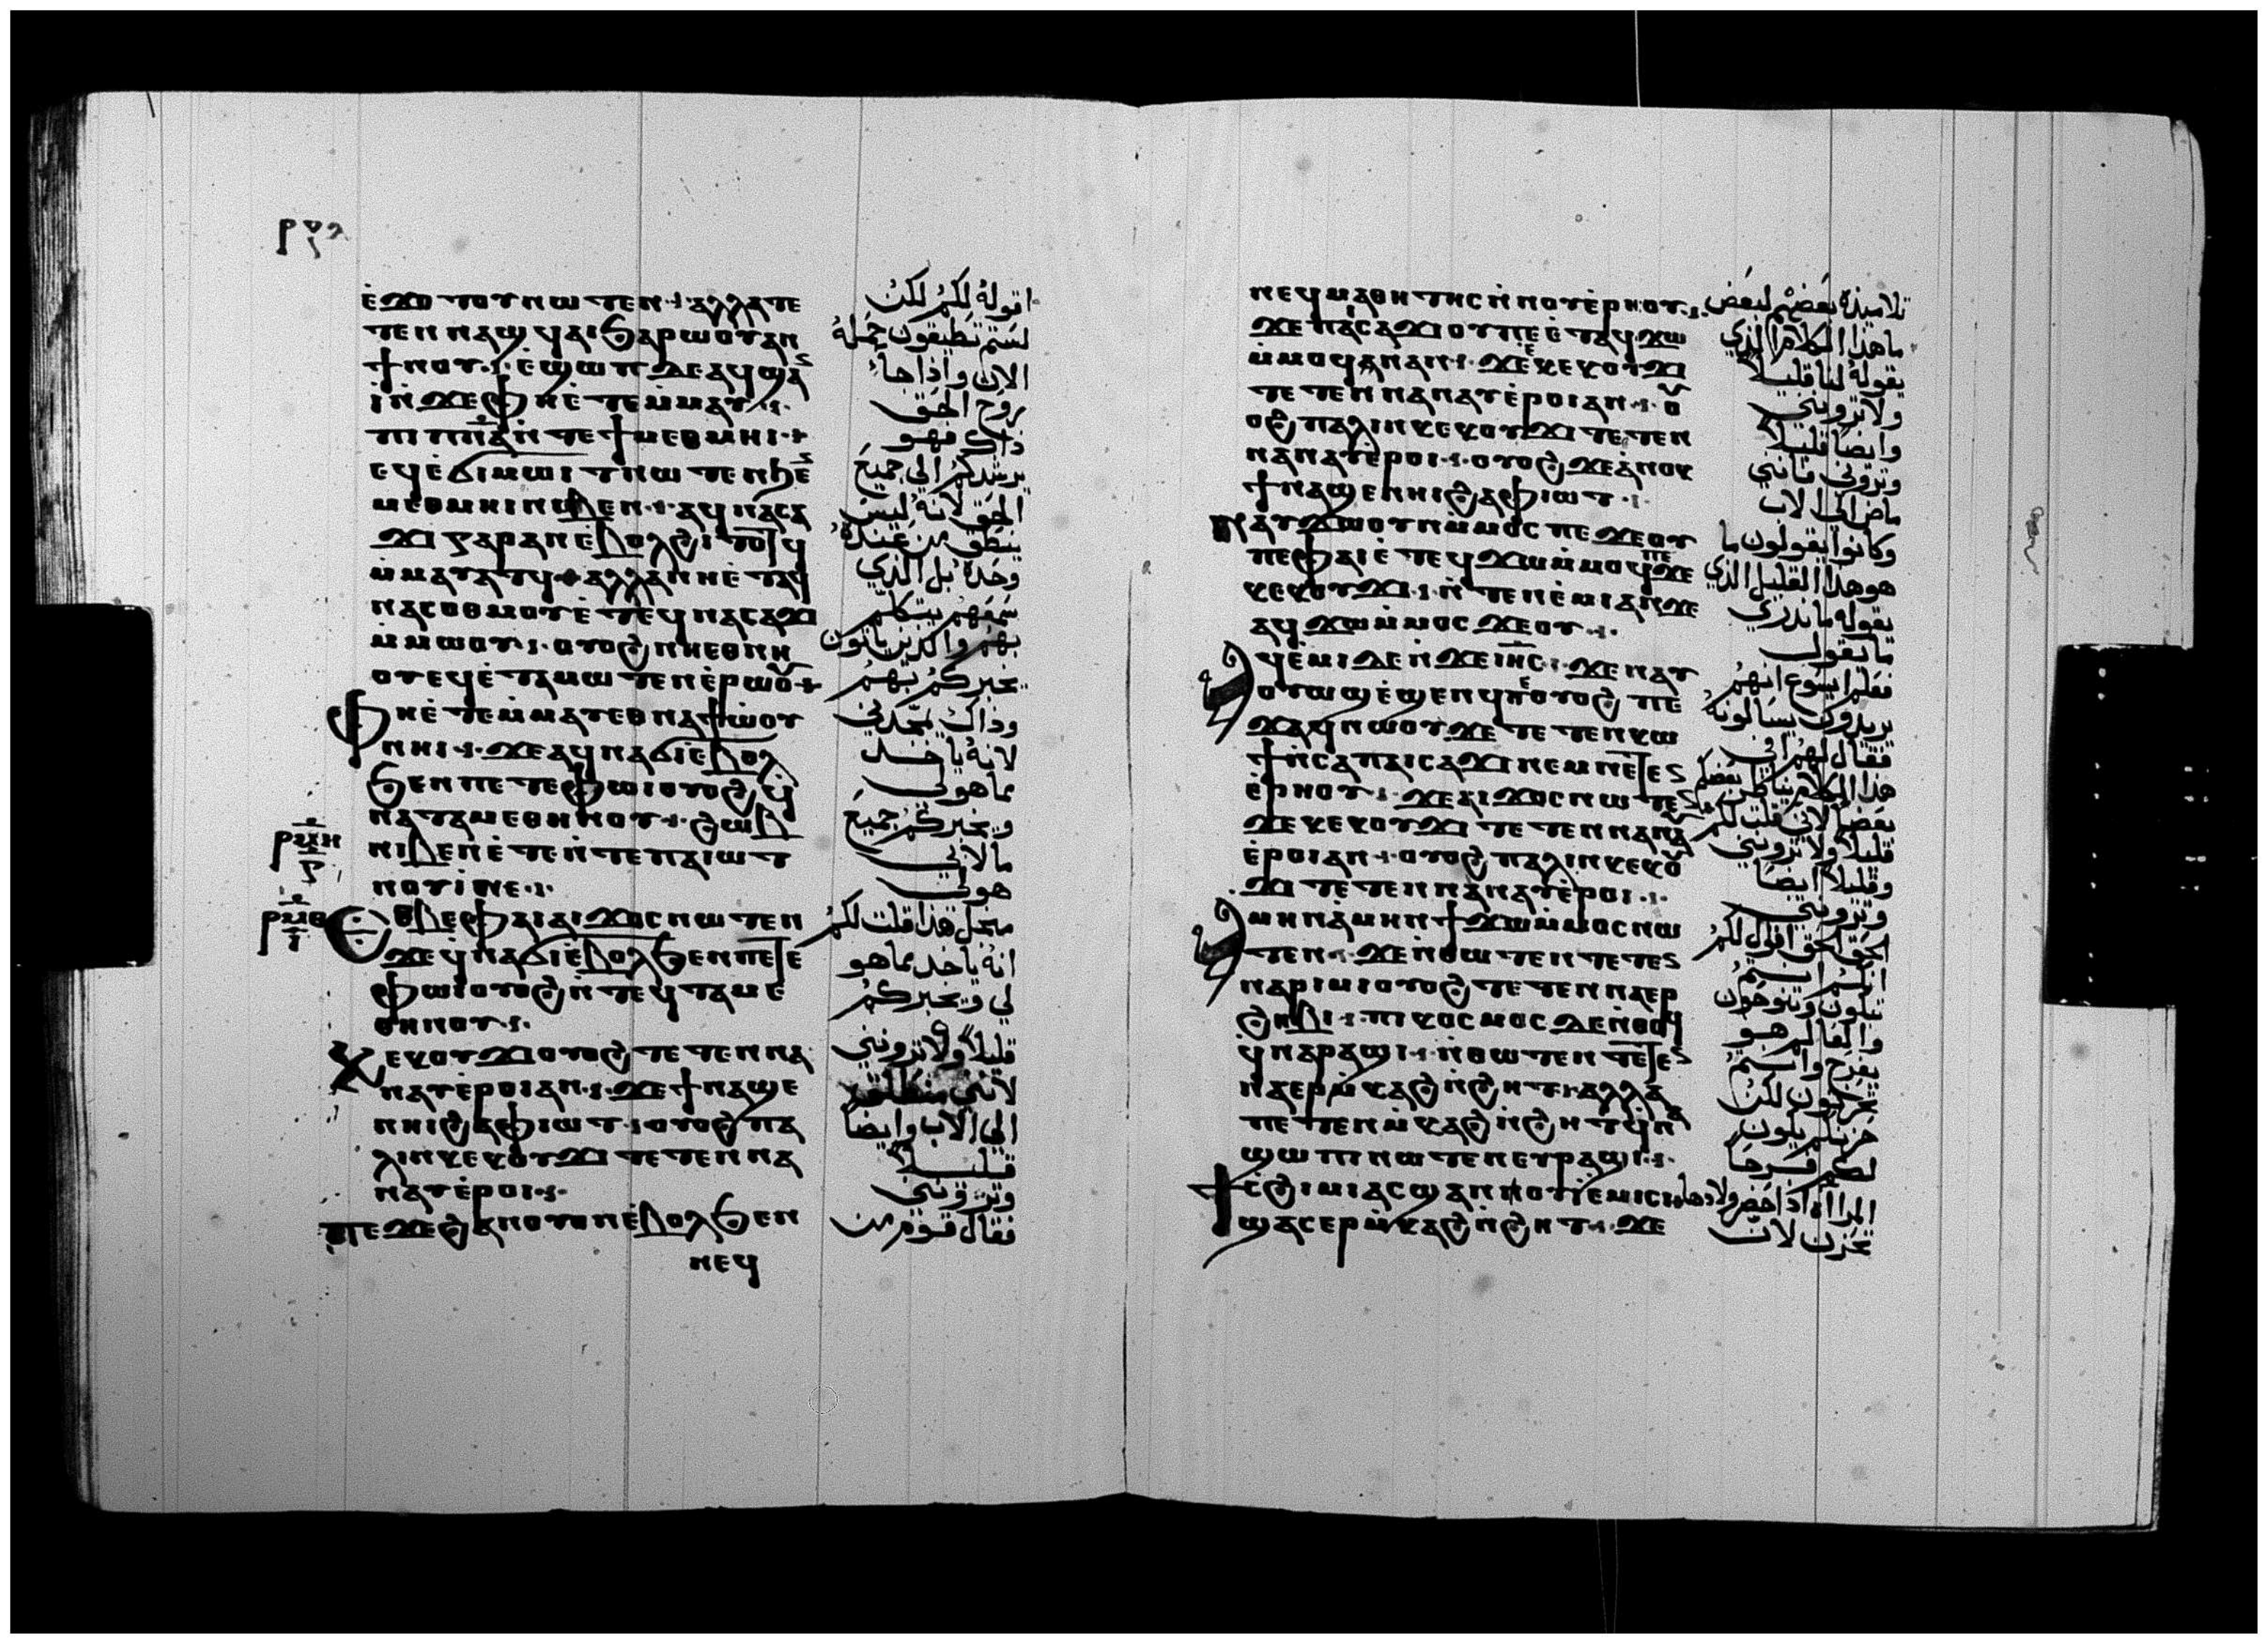 ⲉ̀ϫⲟⲧⲟⲩⲛⲱⲧⲉⲛ· ⲁⲗⲗⲁⲧⲉ
ⲧⲉⲛⲛⲁϣϥⲁⲓϧⲁⲣⲱⲟⲩⲁⲛ
ϯⲛⲟⲩ· ⲉ̀ϣⲱⲡ ⲇⲉⲁϥϣⲁ
ⲓ̀ⲛ̀ϫⲉⲫⲏⲉ̀ⲧⲉⲙⲙⲁⲩ·
ⲡⲓⲡⲛ̅ⲁ̅ⲛ̀ⲧⲉϯⲙⲉⲑⲙⲏⲓ·
ⲉϥⲉ̀ϭⲓⲙⲱⲓⲧⲛⲱⲧⲉⲛϧⲉ̀
ⲙⲉⲑⲙⲏⲓⲛⲓⲃⲉⲛ· ⲁϥⲛⲁⲥⲁ
ϫⲓⲅⲁⲣⲁⲛⲉ̀ⲃⲟⲗϩⲓⲧⲟⲧϥ
ⲙ̀ⲙⲁⲩⲁⲧϥ· ⲁⲗⲗⲁⲛⲏⲉ̀ⲧⲁϥ
ⲛⲁⲥⲟⲑⲙⲟⲩⲉ̀ⲧⲉϥⲛⲁⲥⲁϫⲓ
ⲙ̀ⲙⲱⲟⲩ· ⲟⲩⲟϩⲛⲏⲉⲑⲛⲏ
ⲟⲩⲉϥⲉ̀ⲧⲁⲙⲱⲧⲉⲛⲉ̀ⲣⲱⲟ̅
ⲫⲏⲉ̀ⲧⲉⲙ̀ⲙⲁⲩⲉⲑⲛⲁϯⲱ̀ⲟⲩ
ⲛⲏⲓ· ϫⲉⲁϥⲛⲁϭⲓⲉ̀ⲃⲟⲗ
ϧⲉⲛⲡⲉⲧⲉⲫⲱⲓⲟⲩⲟϩϥ̀
ⲛⲁⲧⲁⲙⲉⲑⲏⲛⲟⲩ· ϩⲱⲃ
ⲛⲓⲃⲉⲛⲉ̀ⲧⲉⲛ̀ⲧⲉⲡⲁⲓⲱⲧ
ⲛⲟⲩⲓ̀ⲛⲉ·
ⲉⲑⲃⲉⲫⲁⲓⲁⲓϫⲟⲥⲛⲱⲧⲉⲛ
ϫⲉϥ̀ⲛⲁϭⲓⲉ̀ⲃⲟⲗϧⲉⲛⲡⲉⲧⲉ
ⲫⲱⲓⲟⲩⲟϩⲛ̀ⲧⲉϥⲧⲁⲙⲉ
ⲑⲏⲛⲟⲩ·
ⲕⲉⲕⲟⲩϫⲓⲟⲩⲟϩⲧⲉⲧⲉⲛⲛⲁ
ⲛⲁⲩⲉ̀ⲣⲟⲓⲁⲛ· ϫⲉϯⲛⲁϣⲉ
ⲛⲏⲓϩⲁⲫⲓⲱⲧ· ⲟⲩⲟϩⲡⲁ
ⲗⲓⲛⲕⲉⲕⲟⲩϫⲓⲧⲉⲧⲉⲛⲛⲁ
ⲛⲁⲩⲉ̀ⲣⲟⲓ·
ⲡⲉϫⲉϩⲁⲛⲟⲩⲟⲛⲉ̀ⲃⲟⲗϧⲉⲛ
ⲛⲉϥ
اقوله لكم لكن
لستم تطيقون حمله
الان واذا جا
روح الحق
ذاك فهو
يرشدكم الى جميع
الحق لانه ليس
ينطق من عنده
وحده بل الذي
سمعهم يتكلم
بهم والذين ياتون
يخبركم بهم
وذاك يمجدني
لانه ياخد
مما هو لي
ويخبركم جميع
ما لابي
هو لي
من اجل هذا قلت لكم
انه ياخد مما هو
لي ويخبركم
قليلا ولا ترونني
لانني منطلق
الى الاب وايضا
قليلا
وترونني
فقال قوم من
ⲛⲉϥⲙⲁⲑⲏⲧⲏⲥⲛ̀ⲛⲟⲩⲉ̀ⲣⲏⲟⲩ·
ϫⲉⲡⲁⲓⲥⲁϫⲓⲟⲩⲡⲉⲉ̀ⲧⲁϥϫⲱ
ⲙ̀ⲙⲟϥⲛⲁⲛ· ϫⲉⲕⲉⲕⲟⲩϫⲓ
ⲧⲉⲧⲉⲛⲛⲁⲛⲁⲩⲉ̀ⲣⲟⲓⲁⲛ· ⲟ̅
ⲟϩⲡⲁⲗⲓⲛⲕⲉⲕⲟⲩϫⲓⲧⲉⲧⲉⲛ
ⲛⲁⲛⲁⲩⲉ̀ⲣⲟⲓ· ⲟⲩⲟϩϫⲉⲁ̀ⲛⲟⲕ
ϯⲛⲁϣⲉⲛⲏⲓϩⲁⲫⲓⲱⲧ·
ⲛⲁⲩϫⲱⲟⲩⲛⲙ̀ⲙⲟⲥⲡⲉϫⲉⲟⲩ
ⲡⲉⲫⲁⲓⲉ̀ⲧⲉϥϫⲱⲙ̀ⲙⲟϥϫⲉ
ⲕⲉⲕⲟⲩϫⲓ· ⲛ̀ⲧⲉⲛⲉ̀ⲙⲓⲁⲛϫⲉ
ⲁϥϫⲱⲙ̀ⲙⲟⲥϫⲉⲟⲩ·
ⲁϥⲉ̀ⲙⲓⲇⲉⲛ̀ϫⲉⲓⲏ̅ⲥ̅· ϫⲉⲛⲁⲩ
ⲟⲩⲱϣⲉ̀ϣⲉⲛϥⲡⲉⲟⲩⲟϩ ⲡⲉ
ϫⲁϥⲛⲱⲟⲩϫⲉⲧⲉⲧⲉⲛⲕⲱ
ϯⲛ̀ⲥⲁⲡⲁⲓⲥⲁϫⲓⲛⲉⲙⲛⲉⲧⲉ
ⲉ̀ⲣⲏⲟⲩ· ϫⲉⲁⲓϫⲟⲥⲛⲱⲧⲉ
ϫⲉⲕⲉⲕⲟⲩϫⲓⲧⲉⲧⲉⲛⲛⲁⲛⲁ
ⲉ̀ⲣⲟⲓⲁⲛ· ⲟⲩⲟϩⲡⲁⲗⲓⲛⲕⲉⲕⲟ̅
ϫⲓⲧⲉⲧⲉⲛⲛⲁⲛⲁⲩⲉ̀ⲣⲟⲓ·
ⲁⲙⲏⲛⲁ̀ⲙⲏⲛϯϫⲱⲙ̀ⲙⲟⲥⲛⲱ
ⲧⲉⲛ· ϫⲉⲛ̀ⲑⲱⲧⲉⲛⲧⲉⲧⲉ
ⲛⲁⲣⲓⲙⲓⲟⲩⲟϩⲧⲉⲧⲉⲛⲛⲁⲉⲣ
ϩⲏⲃⲓ· ⲡⲓⲕⲟⲥⲙⲟⲥⲇⲉⲛ̀ⲑⲟϥ
ϥ̀ⲛⲁⲣⲁϣⲓ· ⲛ̀ⲑⲱⲧⲉⲛⲧⲉⲧⲉ
ⲛⲁⲉⲣⲙ̀ⲕⲁϩⲛ̀ϩⲏⲧ· ⲁⲗⲗⲁ
ⲡⲉⲧⲉⲛⲙ̀ⲕⲁϩⲛ̀ϩⲏⲧϥ̀ⲛⲁ
ϣⲱⲡⲓⲛⲱⲧⲉⲛⲉⲩⲣⲁϣⲓ·
ϯⲥϩⲓⲙⲓⲁⲥϣⲁⲛⲛⲟⲩⲓ̀ⲉ̀ⲙⲓⲥⲓ
ϣⲁⲥⲉⲣⲙ̀ⲕⲁϩⲛ̀ϩⲏⲧ· ϫⲉ
تلاميذه بعضهم لبعض
ما هذا الكلام الذي
يقوله لنا قليلا
ولا ترونني
وايضا قليلا
وتروني فانني
ماض الى الاب
وكانوا يقولون ما
هو هذا القليل الذي
يقوله ما ندري
ما يقول
فعلم ايسوع انهم
يريدون يسالونه
فقال لهم
هذا الكلام
بعضا لاني قلت لكم
قليلا ولا ترونني
وقليلا ايضا
وترونني
الحق الحق اقول لكم
انكم انتم
تبكون وتنوحون
والعالم هو
يفرح وانتم
تحزنون لكن
حزنكم يكون
لكم فرحا
المراة اذا حضر ولادها
تحزن لان